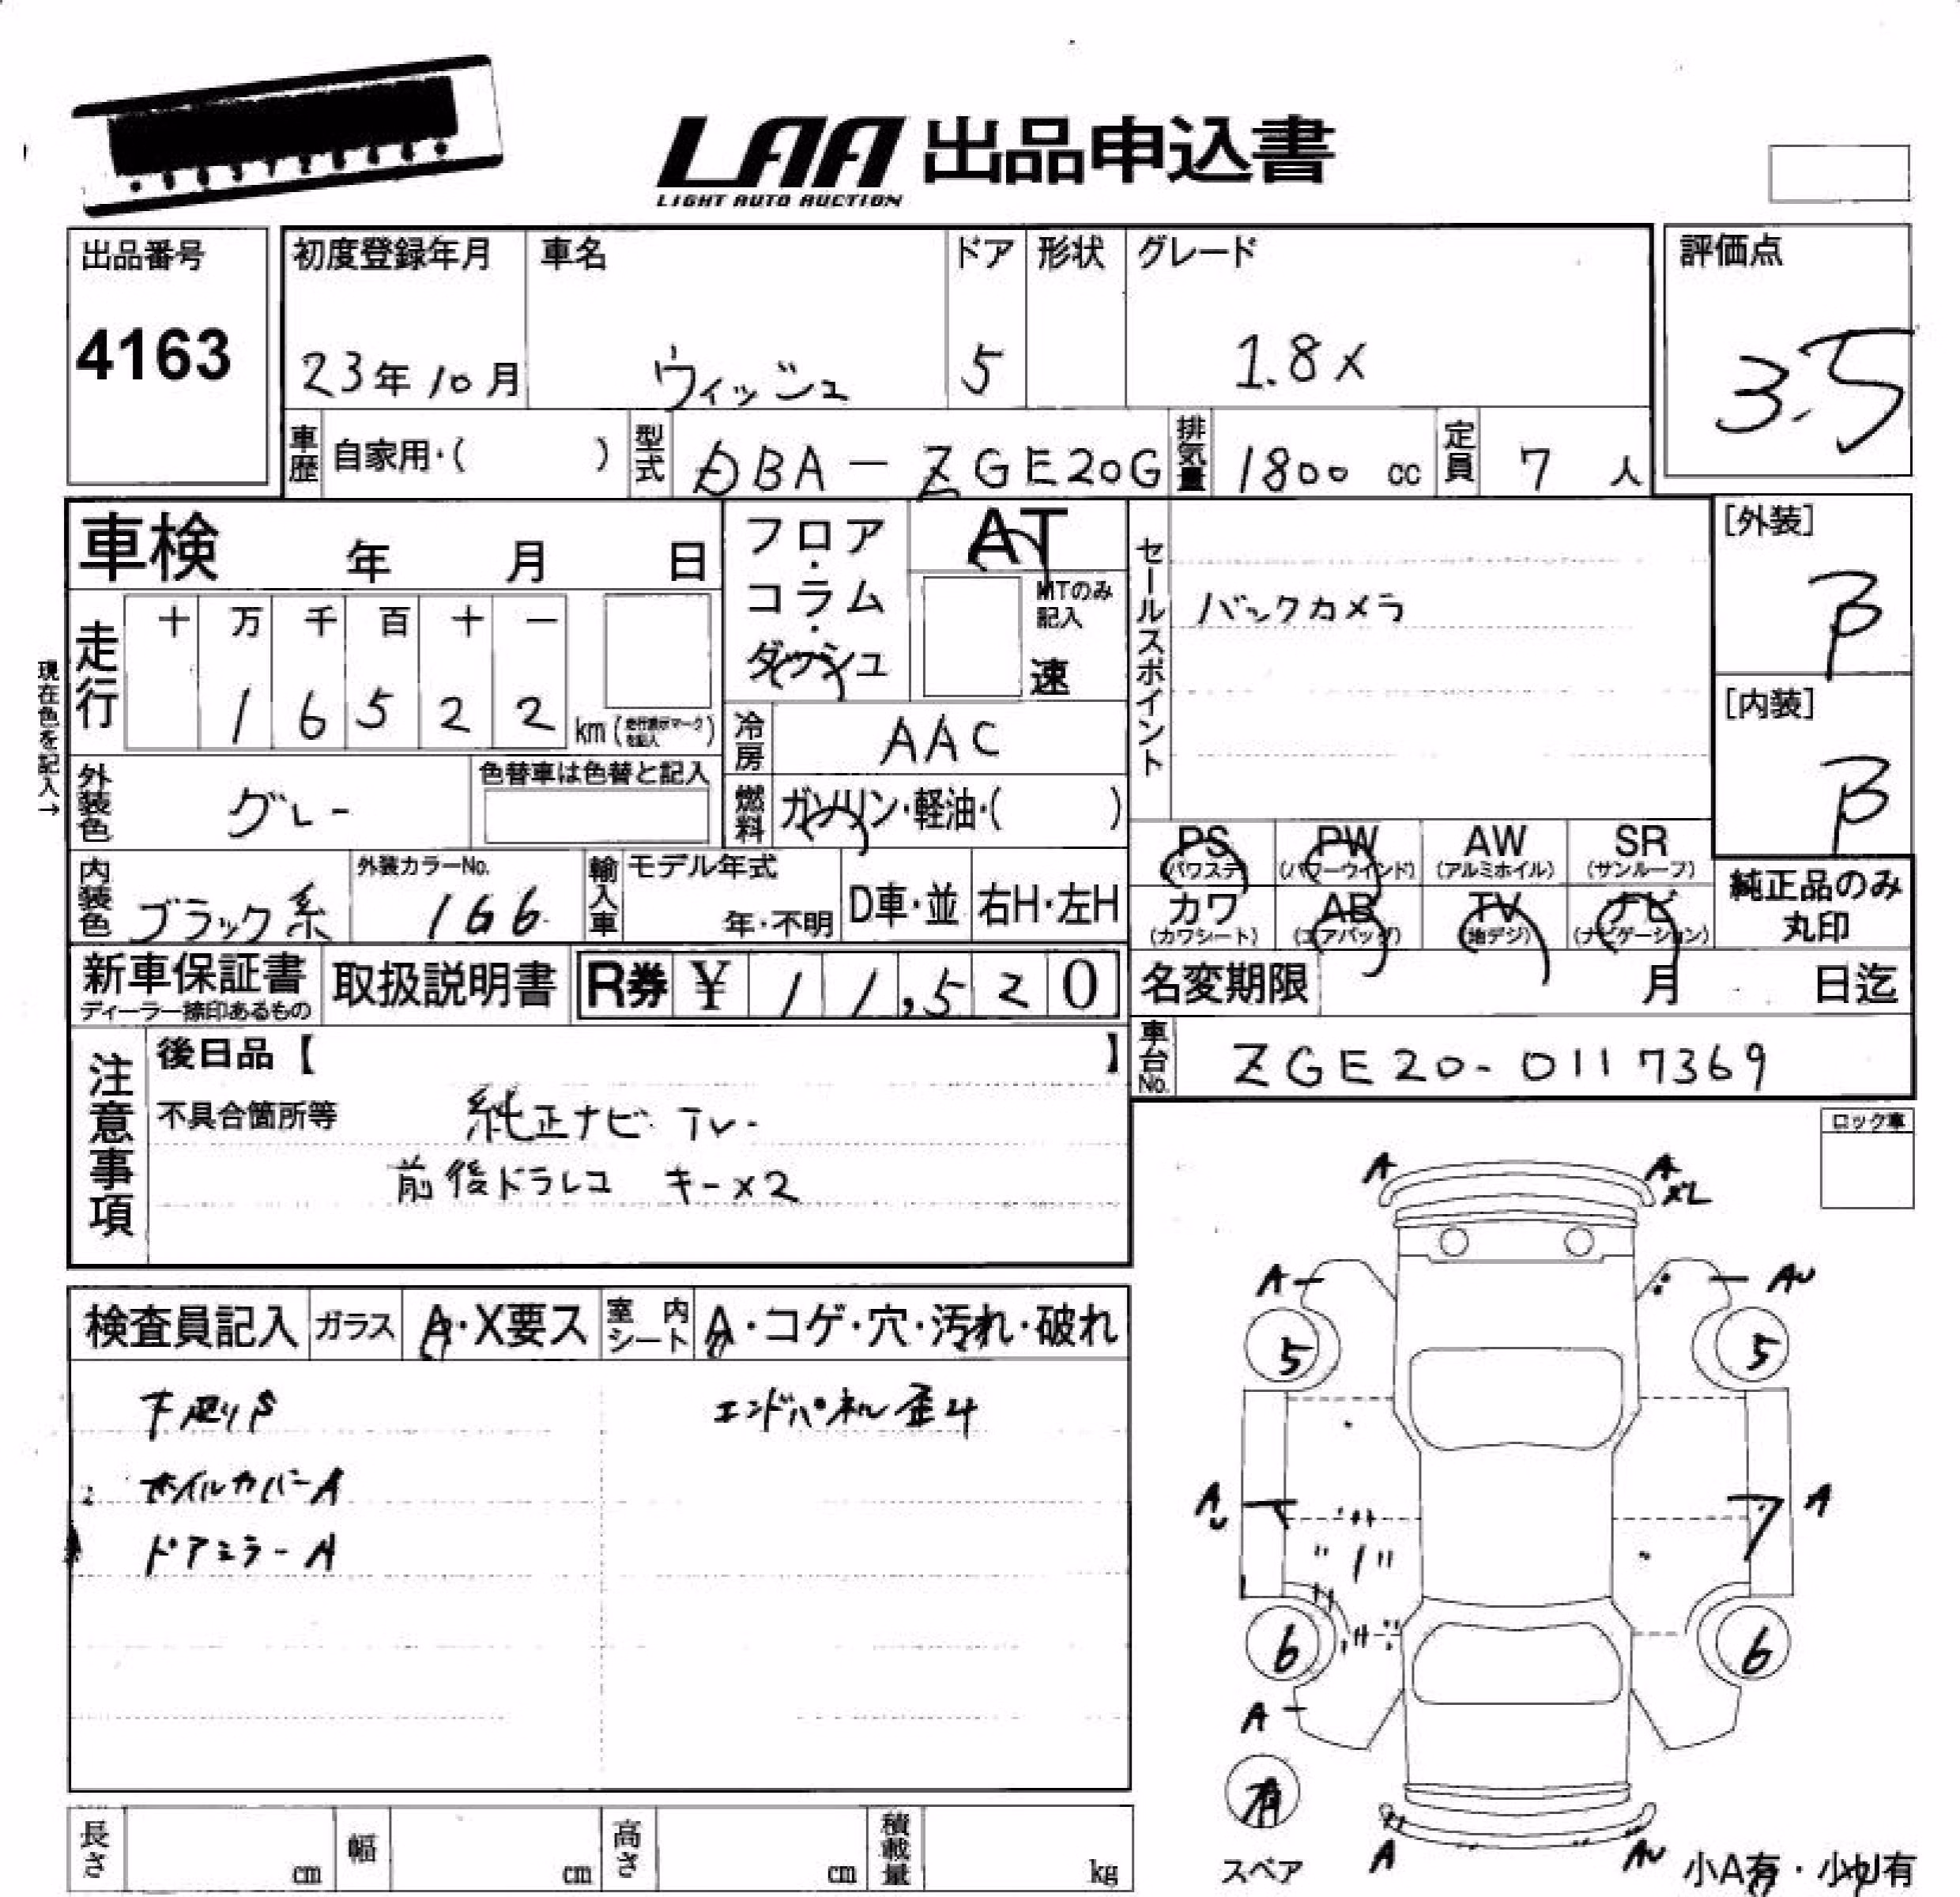 LAA 出品申込書
LIGHT AUTO AUCTION
出品番号
4163
初度登録年月
23年10月
車名
ウィッシュ
ドア
5
形状
グレード
1.8X
評価点
3.5
車歴
自家用・( )
型式
DBA-ZGE20G
排気量
1800 cc
定員
7 人
車検 年 月 日
フロア・コラム・ダッシュ
AT
MTのみ記入
速
セールスポイント
バックカメラ
[外装]
B
[内装]
B
現在色を記入→
走行
十 万 千 百 十 一
1 6 5 2 2
km(走行表示マークを記入)
冷房
AAC
外装色
グレー
色替車は色替と記入
燃料
ガソリン・軽油・( )
PS (パワステ)
PW (パワーウインド)
AW (アルミホイル)
SR (サンルーフ)
内装色
ブラック系
外装カラーNo.
1G6
輸入車
モデル年式
年・不明
D車・並
右H・左H
カワ (カワシート)
AB (エアバッグ)
TV (地デジ)
ナビ (ナビゲーション)
純正品のみ丸印
新車保証書
ディーラー捺印あるもの
取扱説明書
R券 ¥ 11,520
名変期限 月 日迄
注意事項
後日品【 】
不具合箇所等
純正ナビ TV-
前後ドラレコ キー×2
車台No.
ZGE20-0117369
ロック車
検査員記入
ガラス
A・X要ス
室内シート
A・コゲ・穴・汚れ・破れ
下廻りS
エンドパネル歪み
ホイルカバーA
ドアミラーA
A
A
XL
A
AU
5
5
AU
A
6
6
A
有
スペア
A
AU
小A有・小U有
長さ cm
幅 cm
高さ cm
積載量 kg